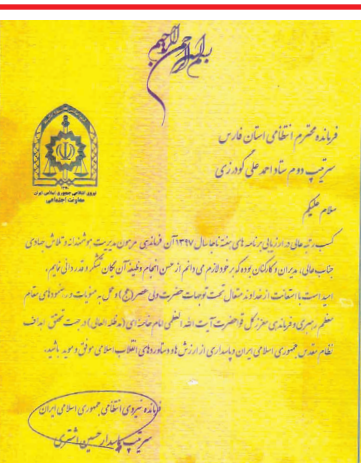 بسم الله الرحمن الرحیم
نیروی انتظامی جمهوری اسلامی ایران
معاونت اجتماعی
فرمانده محترم انتظامی استان فارس
سرتیپ دوم ستاد احمد علی گودرزی
سلام علیکم
کسب رتبه عالی در ارزیابی برنامه های هفته ناجا سال ۱۳۹۷ آن فرماندهی مرهون مدیریت هوشمندانه و تلاش صادقانه
جنابعالی، مدیران و کارکنان بوده که بر خود لازم می دانم از حسن انجام وظیفه آن یگان تشکر و قدردانی نمایم.
امید است با استعانت از خداوند متعال تحت توجهات حضرت ولی عصر (عج) و عمل به منویات و رهنمودهای مقام
معظم رهبری و فرماندهی معزز کل قوا حضرت آیت الله العظمی امام خامنه ای (مدظله العالی) در جهت تحقق اهداف
نظام مقدس جمهوری اسلامی ایران و پاسداری از ارزش ها و دستاوردهای انقلاب اسلامی موفق و موید باشید.
فرمانده نیروی انتظامی جمهوری اسلامی ایران
سرتیپ پاسدار حسین اشتری